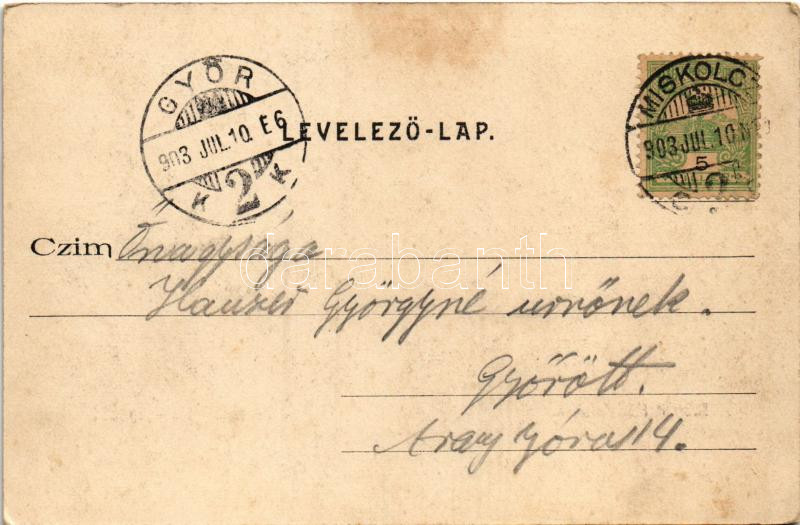 GYŐR
903 JUL. 10. E6
K 2 K
LEVELEZŐ-LAP.
MISKOLC
903 JUL. 10.
5
2
Czim Őnagysága
Hauzer Györgyné urnőnek.
Győrött.
Arany János 14.
darabanth